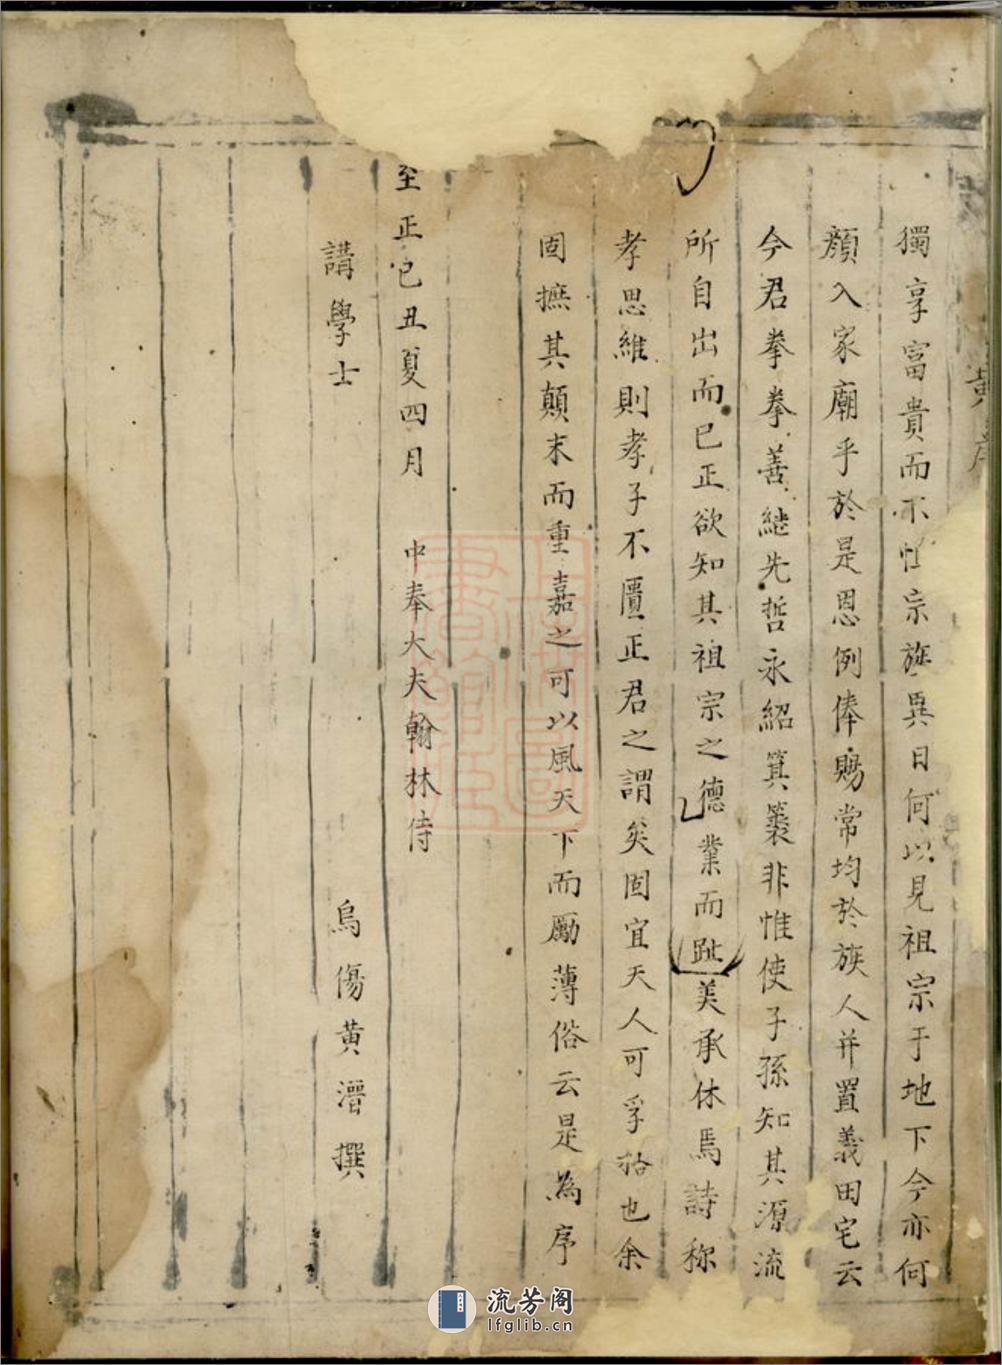 黄序
獨享富貴而不恤宗族異日何以見祖宗于地下今亦何
顔入家廟乎於是恩例俸賜常均於族人并置義田宅云
今君拳拳善継先哲永紹箕裘非惟使子孫知其源流
所自出而已正欲知其祖宗之德業而趾美承休焉詩称
孝思維則孝子不匱正君之謂矣固宜天人可孚祐也余
固摭其顛末而重嘉之可以風天下而勵薄俗云是為序
至正己丑夏四月 中奉大夫翰林侍
講學士 烏傷黄溍撰
流芳阁
lfglib.cn